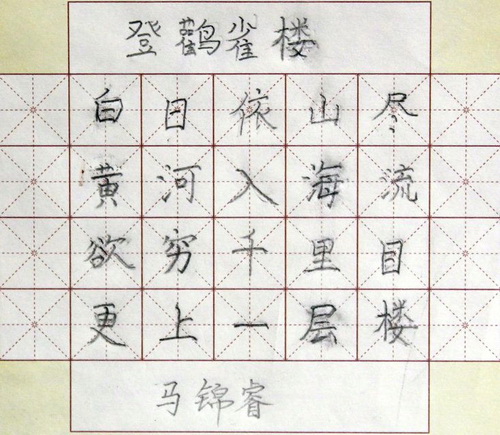 登鹳雀楼
白日依山尽
黄河入海流
欲穷千里目
更上一层楼
马锦睿